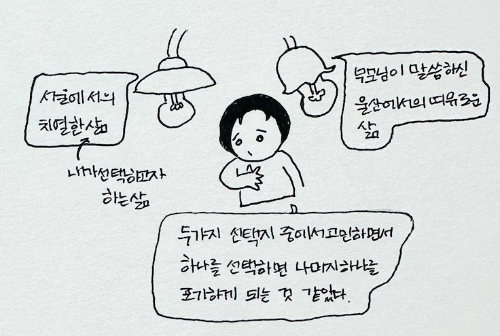 서울에서의
치열한 삶
내가 선택하고자
하는 삶
부모님이 말씀하신
울산에서의 여유로운
삶
두가지 선택지 중에서 고민하면서
하나를 선택하면 나머지 하나를
포기하게 되는 것 같았다.